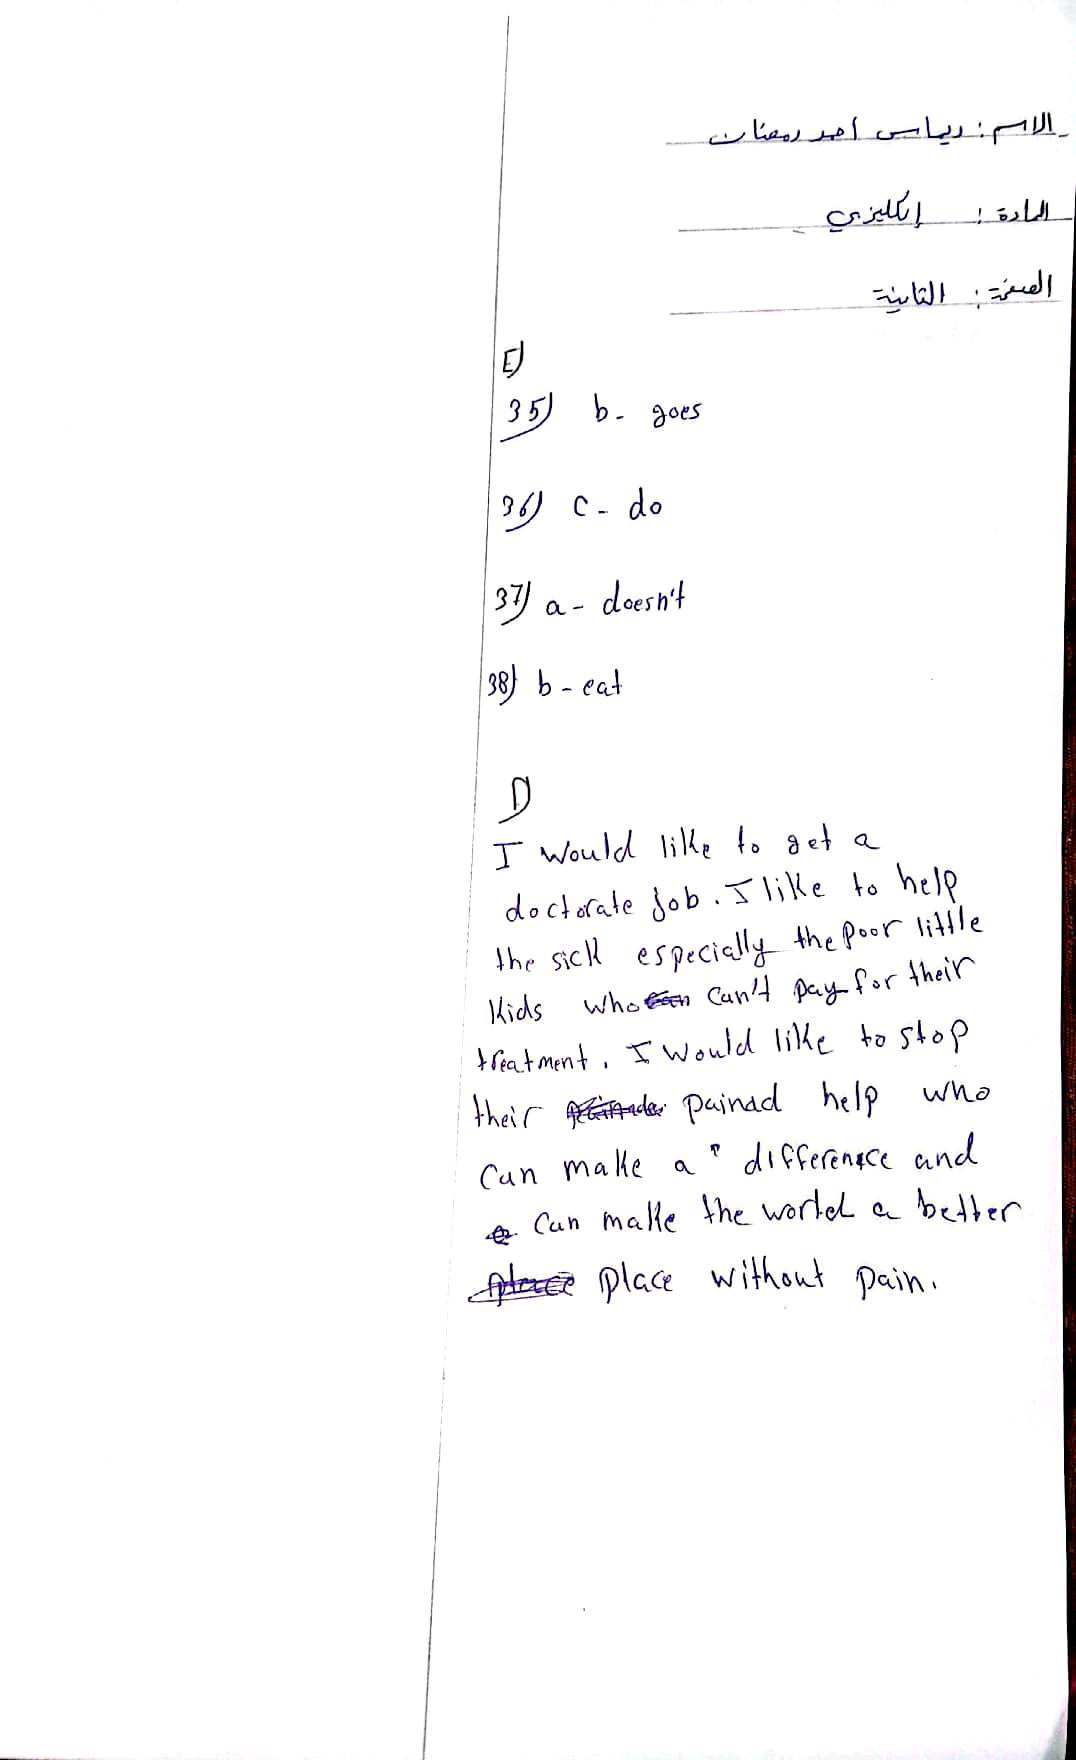 الاسم : ديباس احمد رمضان
المادة : إنكليزي
الصفحة : الثانية
E)
35) b- goes
36) c- do
37) a- doesn't
38) b- eat
D
I would like to get a
doctorate job. I like to help
the sick especially the poor little
kids who can't pay for their
treatment. I would like to stop
their painad help who
can make a difference and
can make the world a better
place without pain.